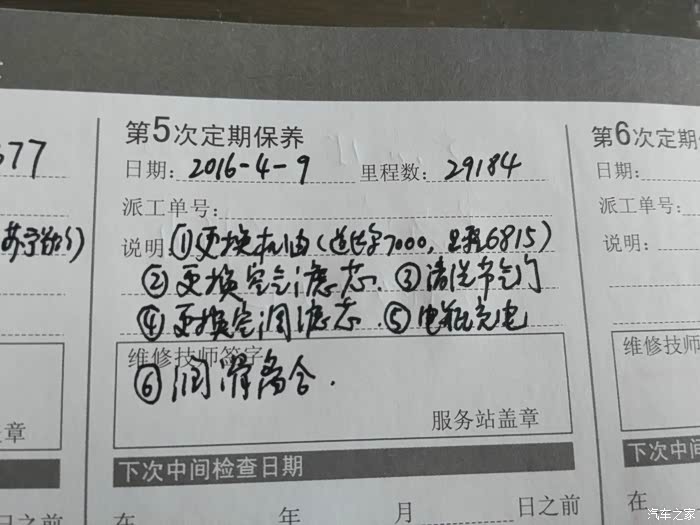 577
第5次定期保养
日期: 2016-4-9 里程数: 29184
派工单号:
说明: ①更换机油(道达尔7000, 里程6815)
②更换空气滤芯. ③清洗节气门
④更换空调滤芯. ⑤电瓶充电
维修技师签字
⑥润滑离合.
服务站盖章
下次中间检查日期
在 年 月 日之前
第6次定期
日期:
派工单号:
说明:
维修技师
下次中间
在
盖章
汽车之家